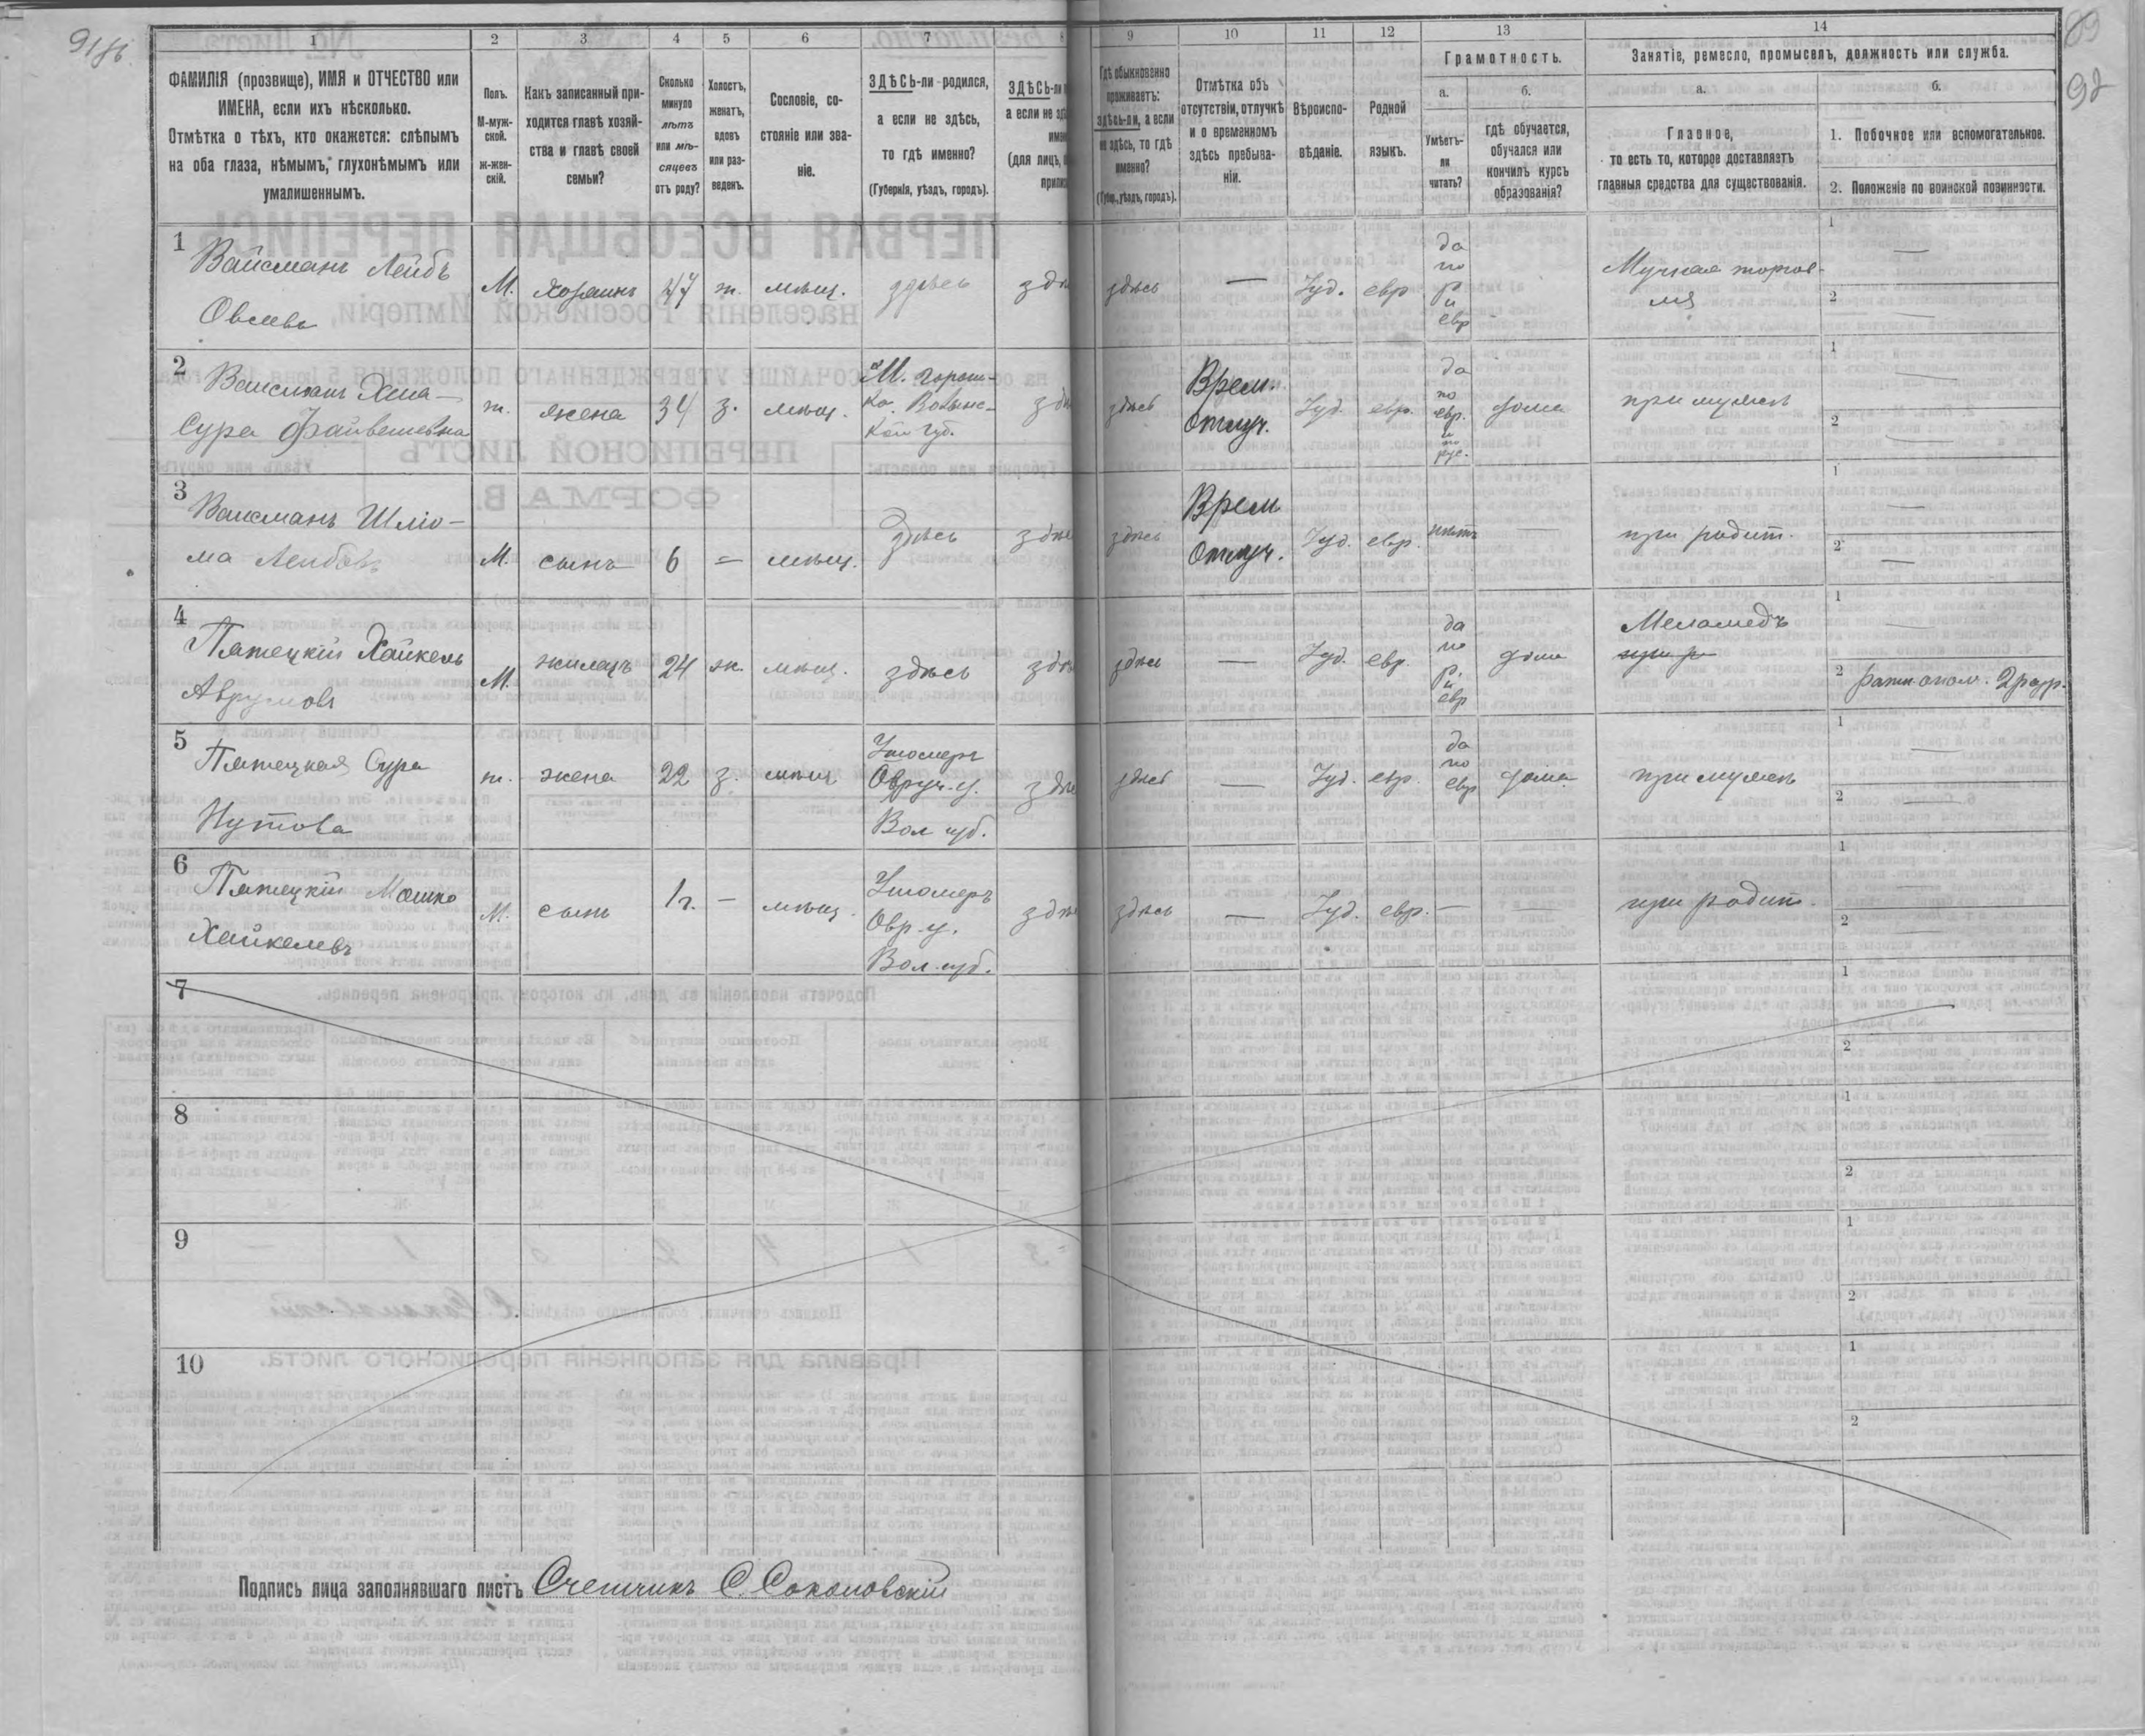 91 об.
89
92
1
2
3
4
5
6
7
8
9
10
11
12
13
14
ФАМИЛІЯ (прозвище), ИМЯ и ОТЧЕСТВО или
ИМЕНА, если ихъ нѣсколько.
Отмѣтка о тѣхъ, кто окажется: слѣпымъ
на оба глаза, нѣмымъ, глухонѣмымъ или
умалишеннымъ.
Полъ.
М-муж-
ской.
Ж-жен-
скій.
Какъ записанный при-
ходится главѣ хозяй-
ства и главѣ своей
семьи?
Сколько
минуло
лѣтъ
или мѣ-
сяцевъ
отъ роду?
Холостъ,
женатъ,
вдовъ
или раз-
веденъ.
Сословіе, со-
стояніе или зва-
ніе.
ЗДѢСЬ-ли родился,
а если не здѣсь,
то гдѣ именно?
(Губернія, уѣздъ, городъ).
ЗДѢСЬ-ли
а если не
(для лицъ,
Гдѣ обыкновенно
проживаетъ:
здѣсь-ли, а если
не здѣсь, то гдѣ
именно?
(Губер., уѣздъ, городъ).
Отмѣтка объ
отсутствіи, отлучкѣ
и о временномъ
здѣсь пребыва-
ніи.
Вѣроиспо-
вѣданіе.
Родной
языкъ.
Грамотность.
а.
Умѣетъ-
ли
читать?
б.
гдѣ обучается,
обучался или
кончилъ курсъ
образованія?
Занятіе, ремесло, промыселъ, должность или служба.
а.
Главное,
то есть то, которое доставляетъ
главныя средства для существованія.
б.
1. Побочное или вспомогательное.
2. Положеніе по воинской повинности.
1
Вайсманъ Лейбъ
Овсеевъ
М. хозяинъ 47 ж. мѣщ. здѣсь
здѣсь — Іуд. евр
да
по
р
и
евр
Мучная торгов-
ля
1 —
2 —
2
Вайсманъ Хана-
Сура Файвешевна
ж. жена 34 з. мѣщ.
М. Горош-
ка Волынс-
кой губ.
здѣсь
Врем.
Отлуч.
Іуд. евр.
да
по
евр.
и
по
рус.
дома при мужѣ
1 —
2 —
3
Вайсманъ Шліо-
ма Лейбовъ
М. сынъ 6 = мѣщ. Здѣсь
здѣсь
Врем
Отлуч.
Іуд. евр. нѣтъ — при родит.
1 —
2 —
4
Пятецкій Хайкель
Аврумовъ
М. жилецъ 24 ж. мѣщ. здѣсь
здѣсь — Іуд. евр.
да
по
р.
и
евр
дома
Меламедъ
при р
1 —
2 Ратн. опол. 2 разр.
5
Пятецкая Сура
Нутова
ж. жена 22 з. мѣщ
Ушомеръ
Овруч. у.
Вол губ.
здѣсь — Іуд. евр.
да
по
евр
дома при мужѣ
1 —
2 —
6
Пятецкій Мошко
Хайкелевъ
М. сынъ 1 г. — мѣщ.
Ушомеръ
Овр. у.
Вол. губ.
здѣсь — Іуд. евр. — — при родит.
1 —
2 —
7
1
2
8
1
2
9
1
2
10
1
2
Подпись лица заполнявшаго листъ Счетчикъ С. Соколовскій